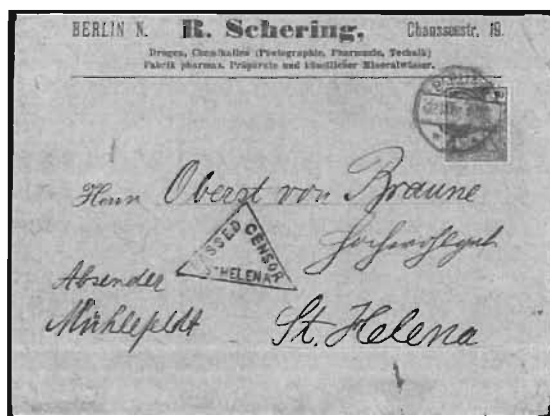 BERLIN N. R. Schering, Chausseestr. 19.
Drogen, Chemikalien (Photographie, Pharmacie, Technik)
Fabrik pharmac. Präparate und künstlicher Mineralwässer.
Herrn Oberst von Braune
Hochwohlgeb
PASSED CENSOR
ST HELENA
Absender
Mühlefeldt
St. Helena